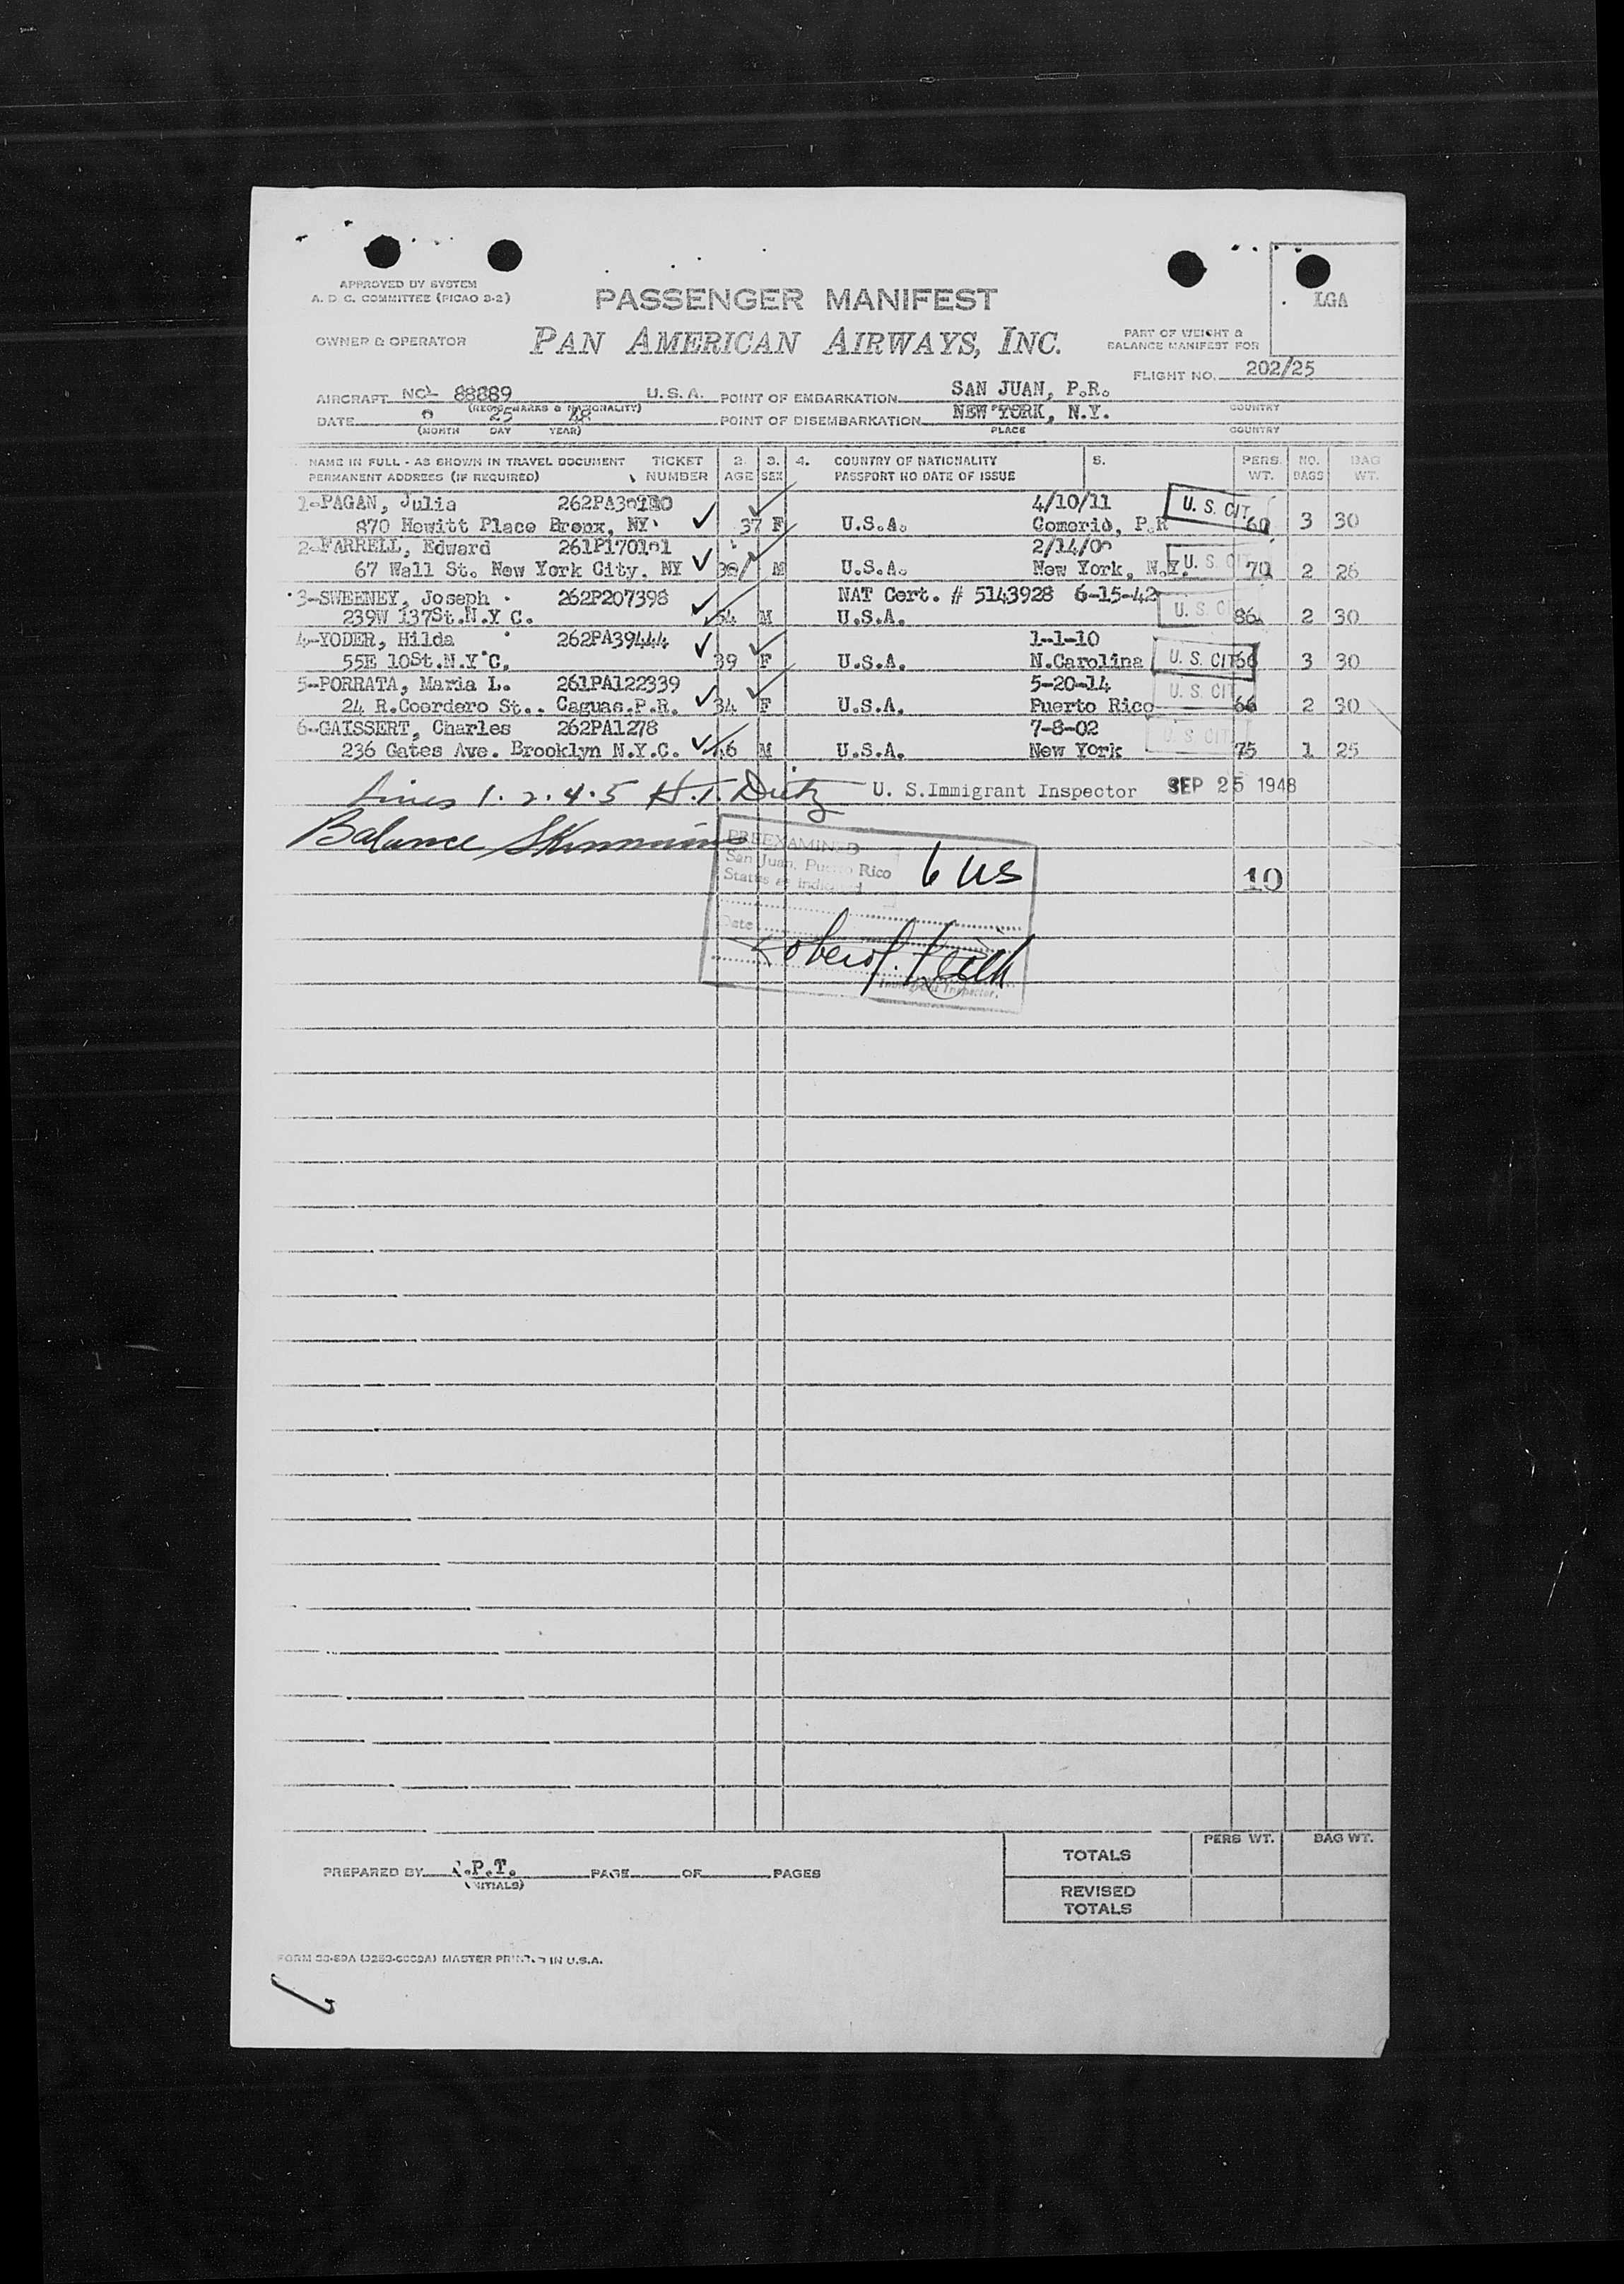 APPROVED BY SYSTEM
A. D. C. COMMITTEE (PICAO 3-2)
PASSENGER MANIFEST
LGA
OWNER & OPERATOR
PAN AMERICAN AIRWAYS, INC.
PART OF WEIGHT &
BALANCE MANIFEST FOR
FLIGHT NO. 202/25
AIRCRAFT NC- 88889 U.S.A. POINT OF EMBARKATION SAN JUAN, P.R.
(REG. MARKS & NATIONALITY) COUNTRY
DATE 25 48 POINT OF DISEMBARKATION NEW YORK, N.Y.
(MONTH DAY YEAR) PLACE COUNTRY
NAME IN FULL - AS SHOWN IN TRAVEL DOCUMENT TICKET 2. 3. 4. COUNTRY OF NATIONALITY 5. PERS. NO. BAG
PERMANENT ADDRESS (IF REQUIRED) NUMBER AGE SEX PASSPORT NO DATE OF ISSUE WT. BAGS WT.
1-PAGAN, Julia 4/10/11 U. S. CIT
870 Hewitt Place Bronx, NY 37 F U.S.A. Comerio, P.R 60 3 30
2-FARRELL, Edward
67 Wall St. New York City. NY M U.S.A. New York, N.Y. U. S. 70 2 26
3-SWEENEY, Joseph 262P207398 NAT Cert. # 5143928 6-15-42
239W 137St.N.Y C. 54 M U.S.A. U. S. CI 86 2 30
4-YODER, Hilda 262PA39444 1-1-10
55E 10St.N.Y C. 39 F U.S.A. N.Carolina U. S. CIT 66 3 30
5-PORRATA, Maria L. 261PA122339 5-20-14 U. S. CIT
24 R.Coordero St.. Caguas.P.R. 34 F U.S.A. Puerto Rico 66 2 30
6-GAISSERT, Charles 262PA1278 7-8-02
236 Gates Ave. Brooklyn N.Y.C. 46 M U.S.A. New York U S CIT 75 1 25
Lines 1. 2. 4. 5 H. T. Dietz U. S.Immigrant Inspector SEP 25 1948
Balance
PREEXAMINED
San Juan, Puerto Rico
Status as indicated
6 US
10
Date
Immigrant Inspector.
PERS WT. BAG WT.
TOTALS
PREPARED BY .P.T. PAGE OF PAGES
(INITIALS)
REVISED
TOTALS
MASTER PRINTED IN U.S.A.